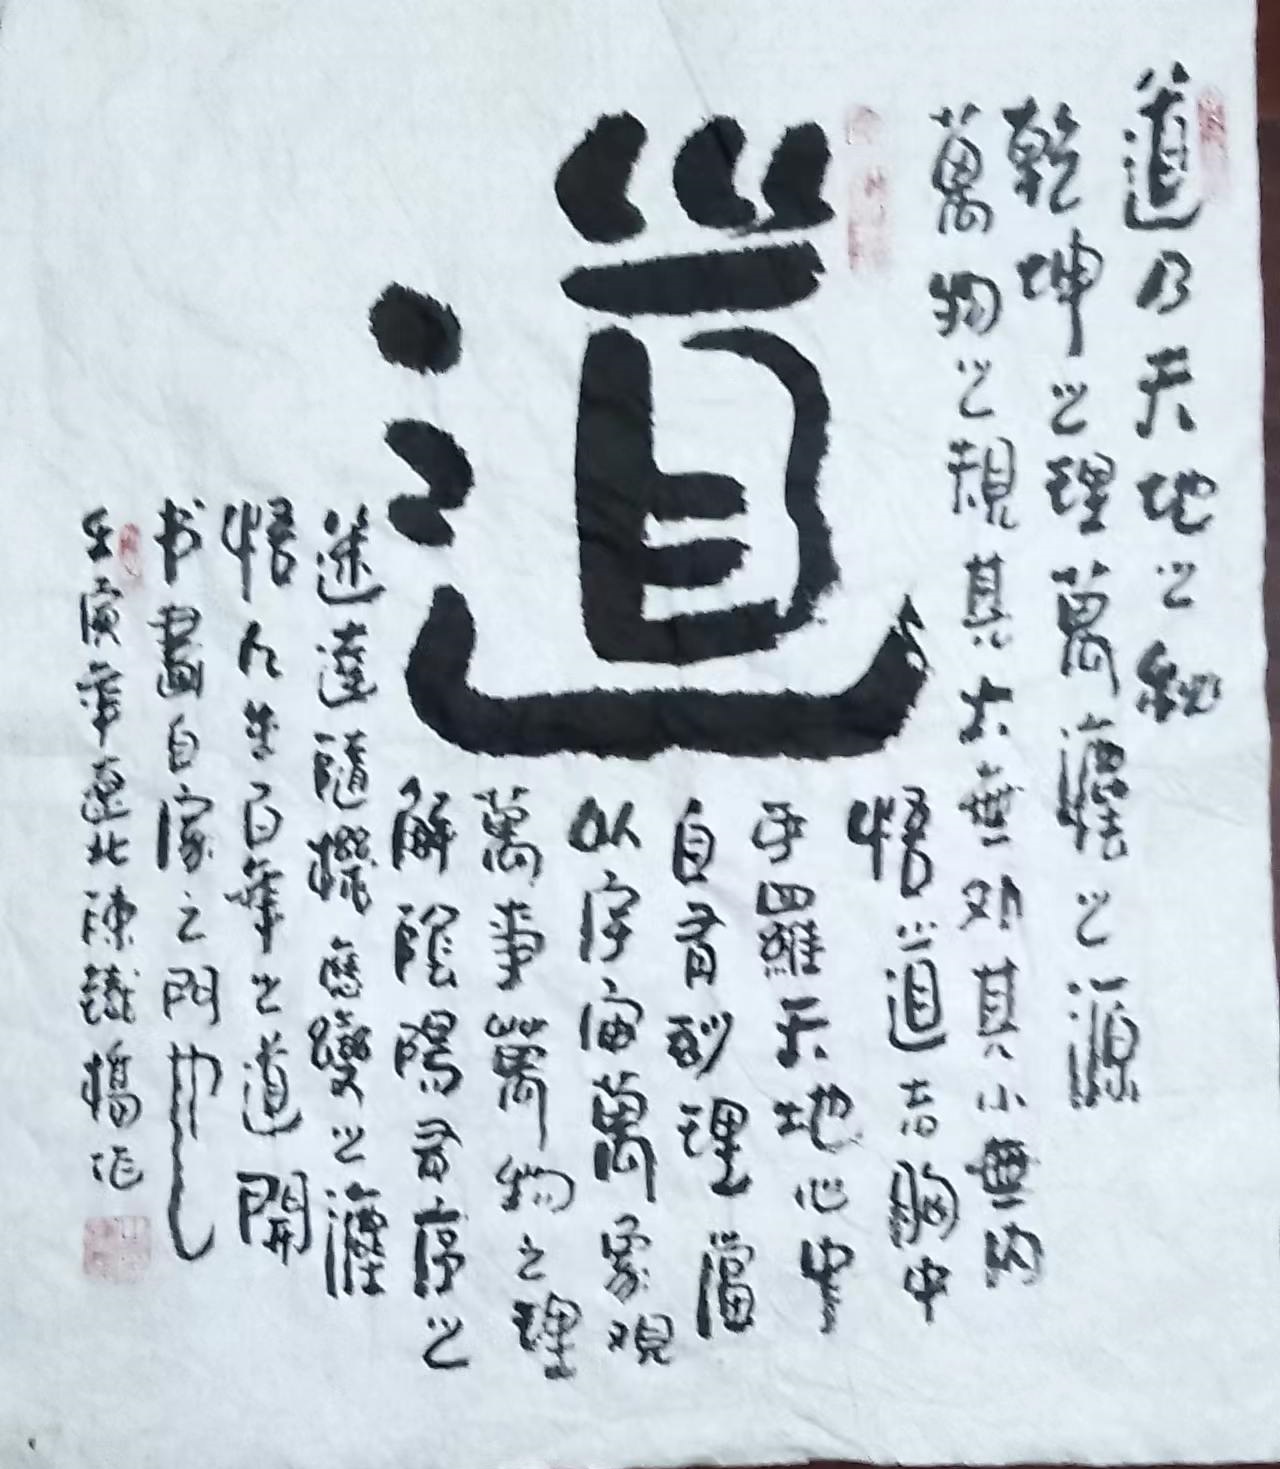 道
道乃天地之秘
乾坤之理萬法之源
萬物之規其大無外其小無内
悟道者胸中
四羅天地心中
自有妙理當
似宇宙萬象观
萬事萬物之理
解陰陽有序之
迷達隨機應變之
悟人生百年之道開
书畫自家之門也
壬寅年遼北陳鐵橋作